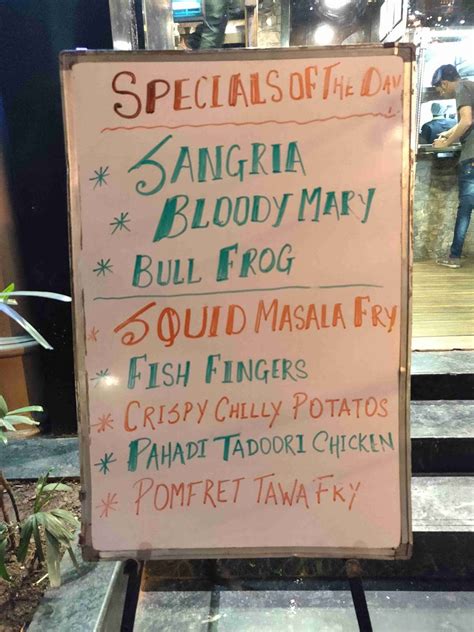 SPECIALS OF THE DAY
* SANGRIA
* BLOODY MARY
* BULL FROG
* SQUID MASALA FRY
* FISH FINGERS
* CRISPY CHILLY POTATOS
* PAHADI TADOORI CHICKEN
* POMFRET TAWA FRY